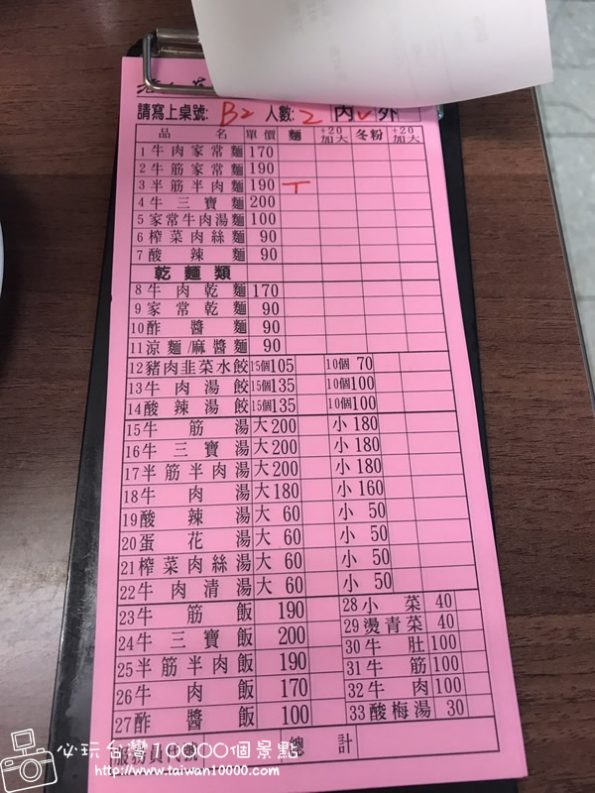 請寫上桌號: B2 人數: 2 內 ✓ 外
品名 單價 麵 +20加大 冬粉 +20加大
1 牛肉家常麵 170
2 牛筋家常麵 190
3 半筋半肉麵 190 T
4 牛三寶麵 200
5 家常牛肉湯麵 100
6 榨菜肉絲麵 90
7 酸辣麵 90
乾麵類
8 牛肉乾麵 170
9 家常乾麵 90
10 酢醬麵 90
11 涼麵/麻醬麵 90
12 豬肉韭菜水餃 15個 105 10個 70
13 牛肉湯餃 15個 135 10個 100
14 酸辣湯餃 15個 135 10個 100
15 牛筋湯 大 200 小 180
16 牛三寶湯 大 200 小 180
17 半筋半肉湯 大 200 小 180
18 牛肉湯 大 180 小 160
19 酸辣湯 大 60 小 50
20 蛋花湯 大 60 小 50
21 榨菜肉絲湯 大 60 小 50
22 牛肉清湯 大 60 小 50
23 牛筋飯 190
24 牛三寶飯 200
25 半筋半肉飯 190
26 牛肉飯 170
27 酢醬飯 100
28 小菜 40
29 燙青菜 40
30 牛肚 100
31 牛筋 100
32 牛肉 100
33 酸梅湯 30
服務員代號 總計
必玩台灣10000個景點
http://www.taiwan10000.com/